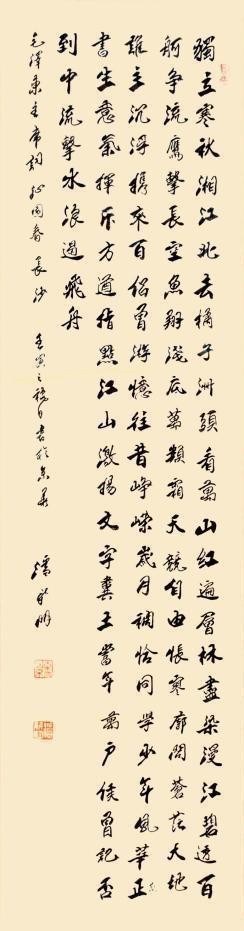 獨立寒秋湘江北去橘子洲頭看萬山紅遍層林盡染漫江碧透百
舸爭流鷹擊長空魚翔淺底萬類霜天競自由悵寥廓問蒼茫大地
誰主沉浮攜來百侶曾游憶往昔崢嶸歲月稠恰同學少年風華正茂
書生意氣揮斥方遒指點江山激揚文字糞土當年萬戶侯曾記否
到中流擊水浪遏飛舟
毛澤東主席詞沁園春長沙 壬寅之秋月書於京華